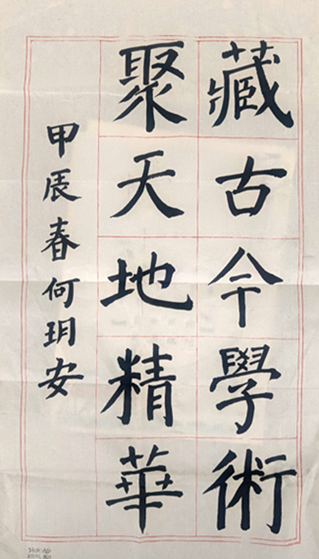 藏古今學術
聚天地精華
甲辰春何玥安